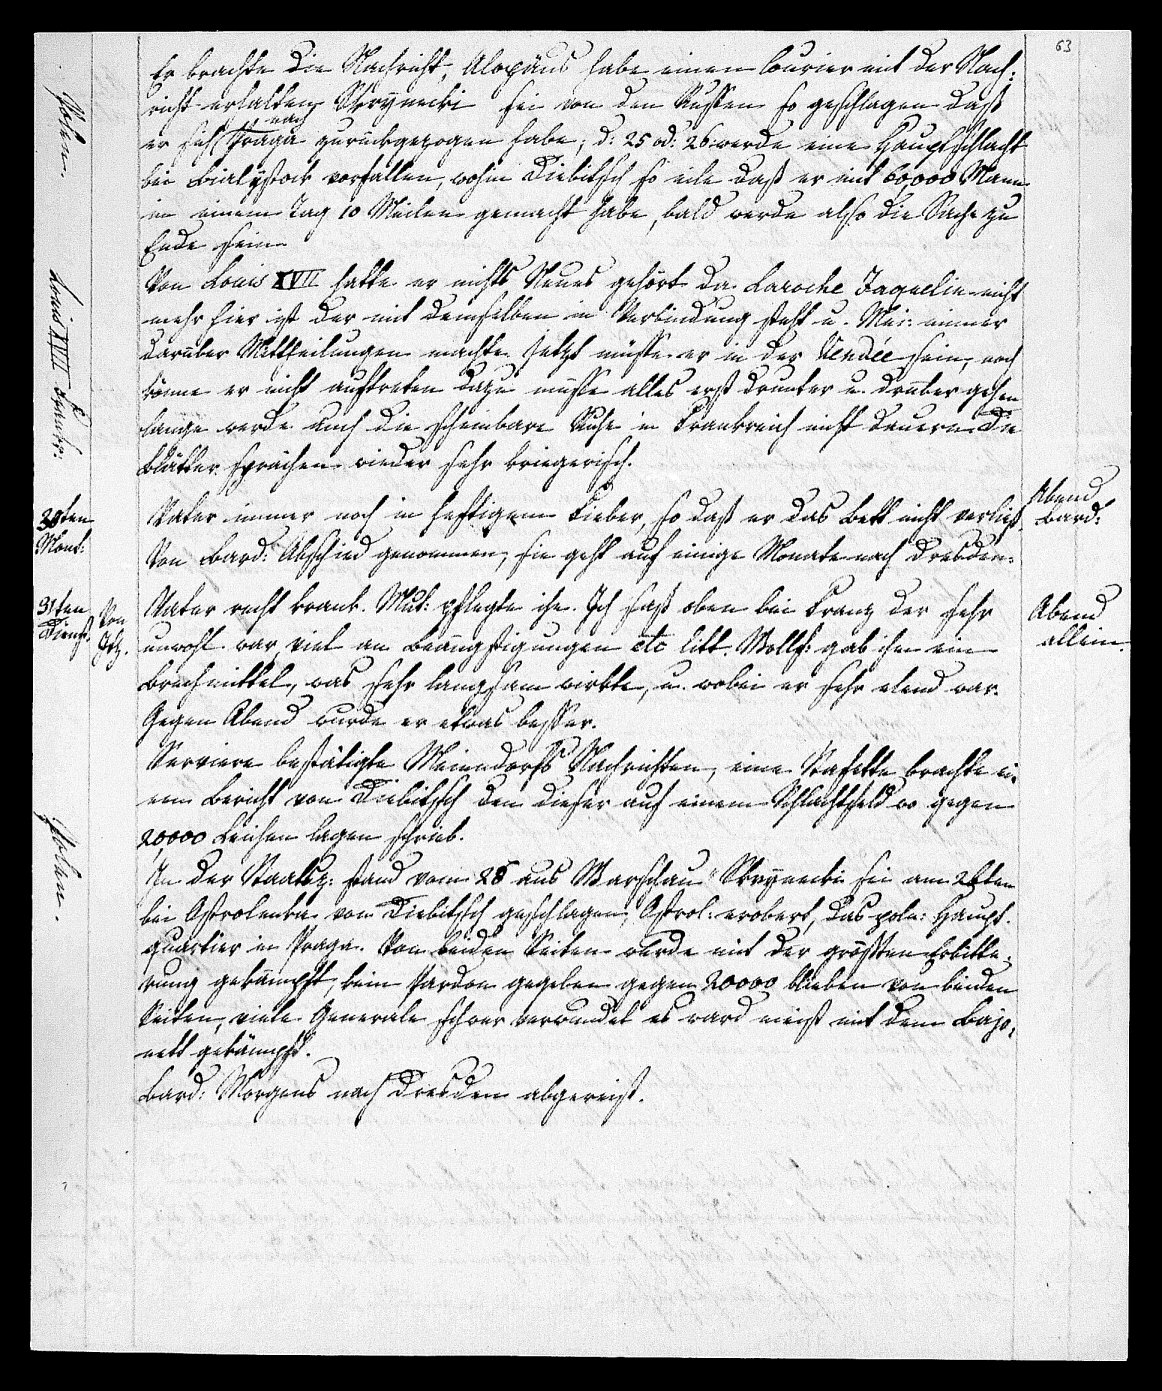 63
Er brachte die Nachricht, Alopäus habe einen Courier mit der Nach=
richt erhalten Skrzynecki sei von den Russen so geschlagen daß
er sich nach Praga zurückgezogen habe; d: 25 od: 26 werde eine Hauptschlacht
bei Bialystock vorfallen, wohin Diebitsch so eile daß er mit 60,000 Mann
in einem Tag 10 Meilen gemacht habe, bald werde also die Sache zu
Ende sein.
Polen.
Von Louis XVII hatte er nichts Neues gehört da Laroche Jaquelin nicht
mehr hier ist der mit demselben in Verbindung steht u. Mei: immer
darüber Mittheilungen machte. Jetzt müsse er in der Vendée sein, noch
könne er nicht auftreten dazu müsse alles erst drunter u. drüber gehen
lange werde auch die scheinbare Ruhe in Frankreich nicht dauern. Die
Blätter sprächen wieder sehr kriegerisch.
Louis XVII Frankr:
30ten
Mont:
Vater immer noch in heftigem Fieber, so daß er das Bett nicht verließ.
Von Bard: Abschied genommen, sie geht auf einige Monate nach Dresden.
Abend
Bard:
31ten
Dienst.
Vater recht krank. Mut: pflegte ihn. Ich saß oben bei Franz der sehr
unwohl war, viel an Beängstigungen etc litt. Wolff: gab ihm ein
Brechmittel, was sehr langsam wirkte, u. wobei er sehr elend war.
Gegen Abend wurde er etwas besser.
Abend
allein.
Serviere bestätigte Meiendorfs Nachrichten, eine Stafette brachte ei=
nen Bericht von Diebitsch den dieser auf einem Schlachtfeld wo gegen
20,000 Leichen lagen schrieb.
Polen.
In der Staatsz: stand vom 28 aus Warschau Skrzynecki sei am 26ten
bei Ostrolenka von Diebitsch geschlagen, Ostrol: erobert, das poln: Haupt=
quartier in Praga. Von beiden Seiten werde mit der größten Erbitte=
rung gekämpft, kein Pardon gegeben gegen 20000 blieben von beiden
Seiten, viele Generale schwer verwundet es ward meist mit dem Bajo=
nett gekämpft.
Bard: Morgens nach Dresden abgereist.